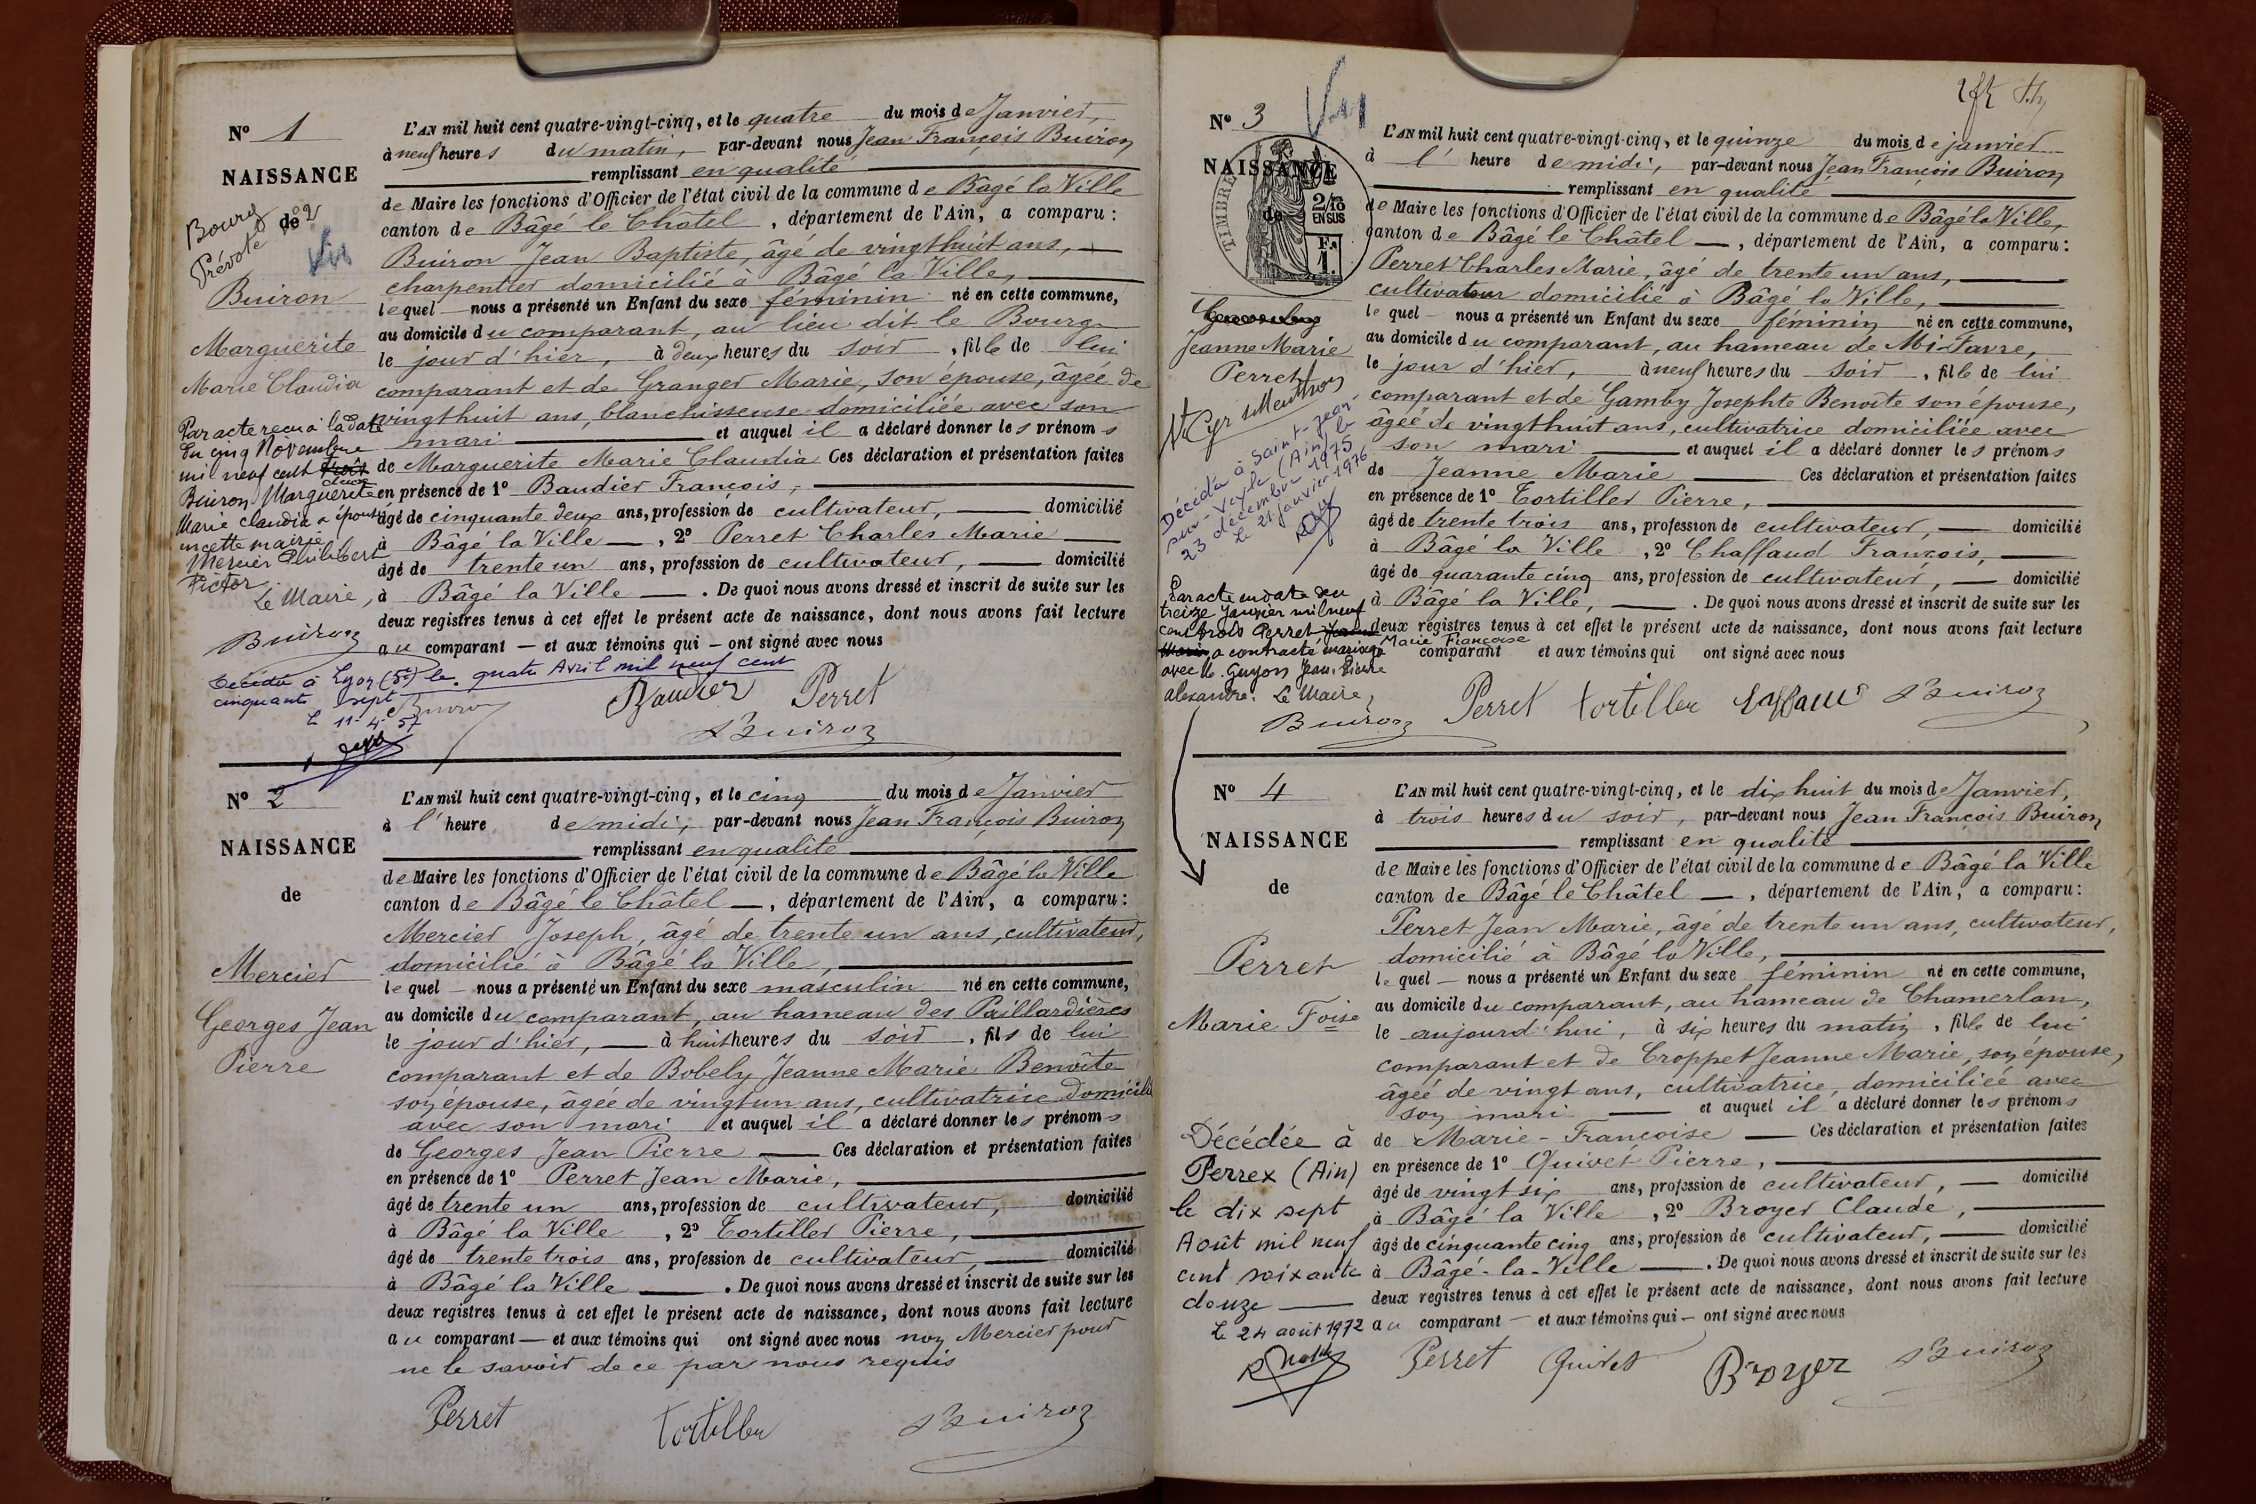 Nº 1
NAISSANCE
de
Bourg
Prévoté
Buiron
Marguerite
Marie Claudia
Par acte reçu à la date
du cinq Novembre
mil neuf cent trois
deux
Buiron Marguerite
Marie Claudia a épousé
en cette mairie
Mercier Philibert
Victor
Le Maire,
Buiron
Décédée à Lyon (5e) le quatre Avril mil neuf cent
cinquante sept
Le 11-4-57
L'AN mil huit cent quatre-vingt-cinq, et le quatre du mois de Janvier,
à neuf heures du matin, par-devant nous Jean François Buiron
remplissant en qualité
de Maire les fonctions d'Officier de l'état civil de la commune de Bâgé la Ville
canton de Bâgé le Châtel, département de l'Ain, a comparu :
Buiron Jean Baptiste, âgé de vingt huit ans,
charpentier domicilié à Bâgé la Ville,
lequel nous a présenté un Enfant du sexe féminin né en cette commune,
au domicile du comparant, au lieu dit le Bourg
le jour d'hier, à deux heures du soir, fille de lui
comparant et de Granger Marie, son épouse, âgée de
vingt huit ans, blanchisseuse domiciliée avec son
mari et auquel il a déclaré donner les prénoms
de Marguerite Marie Claudia Ces déclaration et présentation faites
en présence de 1º Baudier François,
âgé de cinquante deux ans, profession de cultivateur, domicilié
à Bâgé la Ville, 2º Perret Charles Marie
âgé de trente un ans, profession de cultivateur, domicilié
à Bâgé la Ville. De quoi nous avons dressé et inscrit de suite sur les
deux registres tenus à cet effet le présent acte de naissance, dont nous avons fait lecture
au comparant — et aux témoins qui — ont signé avec nous
Baudier Perret
Buiron
Nº 2
NAISSANCE
de
Mercier
Georges Jean
Pierre
L'AN mil huit cent quatre-vingt-cinq, et le cinq du mois de Janvier
à l'heure de midi, par-devant nous Jean François Buiron
remplissant en qualité
de Maire les fonctions d'Officier de l'état civil de la commune de Bâgé la Ville
canton de Bâgé le Châtel —, département de l'Ain, a comparu :
Mercier Joseph, âgé de trente un ans, cultivateur,
domicilié à Bâgé la Ville,
lequel — nous a présenté un Enfant du sexe masculin né en cette commune,
au domicile du comparant, au hameau des Paillardières
le jour d'hier, — à huit heures du soir, fils de lui
comparant et de Bobely Jeanne Marie Benoîte
son épouse, âgée de vingt un ans, cultivatrice domiciliée
avec son mari et auquel il a déclaré donner les prénoms
de Georges Jean Pierre — Ces déclaration et présentation faites
en présence de 1º Perret Jean Marie,
âgé de trente un ans, profession de cultivateur, domicilié
à Bâgé la Ville, 2º Tortiller Pierre,
âgé de trente trois ans, profession de cultivateur, domicilié
à Bâgé la Ville —. De quoi nous avons dressé et inscrit de suite sur les
deux registres tenus à cet effet le présent acte de naissance, dont nous avons fait lecture
au comparant — et aux témoins qui ont signé avec nous non Mercier pour
ne le savoir de ce par nous requis
Perret Tortiller Buiron
Nº 3
NAISSANCE
de
TIMBRE
2/10
EN SUS
F.
1.
Jeanne Marie
Perret
St Cyr s Menthon
Décédée à Saint-Jean-
sur-Veyle (Ain) le
23 décembre 1975
Le 21 janvier 1976
Par acte en date du
treize Janvier mil neuf
cent trois Perret Jeanne
Marie a contracté mariage
Marie Françoise
avec M. Guyon Jean Pierre
Alexandre. Le Maire,
Buiron
L'AN mil huit cent quatre-vingt-cinq, et le quinze du mois de janvier
à l' heure de midi, par-devant nous Jean François Buiron
remplissant en qualité
de Maire les fonctions d'Officier de l'état civil de la commune de Bâgé la Ville,
canton de Bâgé le Châtel —, département de l'Ain, a comparu :
Perret Charles Marie, âgé de trente un ans,
cultivateur domicilié à Bâgé la Ville,
lequel — nous a présenté un Enfant du sexe féminin né en cette commune,
au domicile du comparant, au hameau de Mi-Favre,
le jour d'hier, à neuf heures du soir, fille de lui
comparant et de Gamby Josephte Benoîte son épouse,
âgée de vingt huit ans, cultivatrice domiciliée avec
son mari et auquel il a déclaré donner les prénoms
de Jeanne Marie Ces déclaration et présentation faites
en présence de 1º Tortiller Pierre,
âgé de trente trois ans, profession de cultivateur, domicilié
à Bâgé la Ville, 2º Chaffaud François,
âgé de quarante cinq ans, profession de cultivateur, domicilié
à Bâgé la Ville, —. De quoi nous avons dressé et inscrit de suite sur les
deux registres tenus à cet effet le présent acte de naissance, dont nous avons fait lecture
comparant et aux témoins qui ont signé avec nous
Perret Tortiller Buiron
Nº 4
NAISSANCE
de
Perret
Marie Foise
Décédée à
Perrex (Ain)
le dix sept
Août mil neuf
cent soixante
douze
Le 24 août 1972
L'AN mil huit cent quatre-vingt-cinq, et le dix huit du mois de Janvier,
à trois heures du soir, par-devant nous Jean François Buiron
remplissant en qualité
de Maire les fonctions d'Officier de l'état civil de la commune de Bâgé la Ville
canton de Bâgé le Châtel —, département de l'Ain, a comparu :
Perret Jean Marie, âgé de trente un ans, cultivateur,
domicilié à Bâgé la Ville,
lequel — nous a présenté un Enfant du sexe féminin né en cette commune,
au domicile du comparant, au hameau de Chamerlan,
le aujourd'hui, à six heures du matin, fille de lui
comparant et de Croppet Jeanne Marie, son épouse,
âgée de vingt ans, cultivatrice, domiciliée avec
son mari — et auquel il a déclaré donner les prénoms
de Marie-Françoise — Ces déclaration et présentation faites
en présence de 1º Quivet Pierre,
âgé de vingt six ans, profession de cultivateur, — domicilié
à Bâgé la Ville, 2º Broyer Claude,
âgé de cinquante cinq ans, profession de cultivateur, — domicilié
à Bâgé-la-Ville —. De quoi nous avons dressé et inscrit de suite sur les
deux registres tenus à cet effet le présent acte de naissance, dont nous avons fait lecture
au comparant — et aux témoins qui — ont signé avec nous
Perret Quivet Broyer Buiron